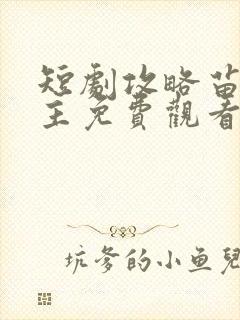 短劇攻略苗
主免費觀看
坑爹的小鱼兒